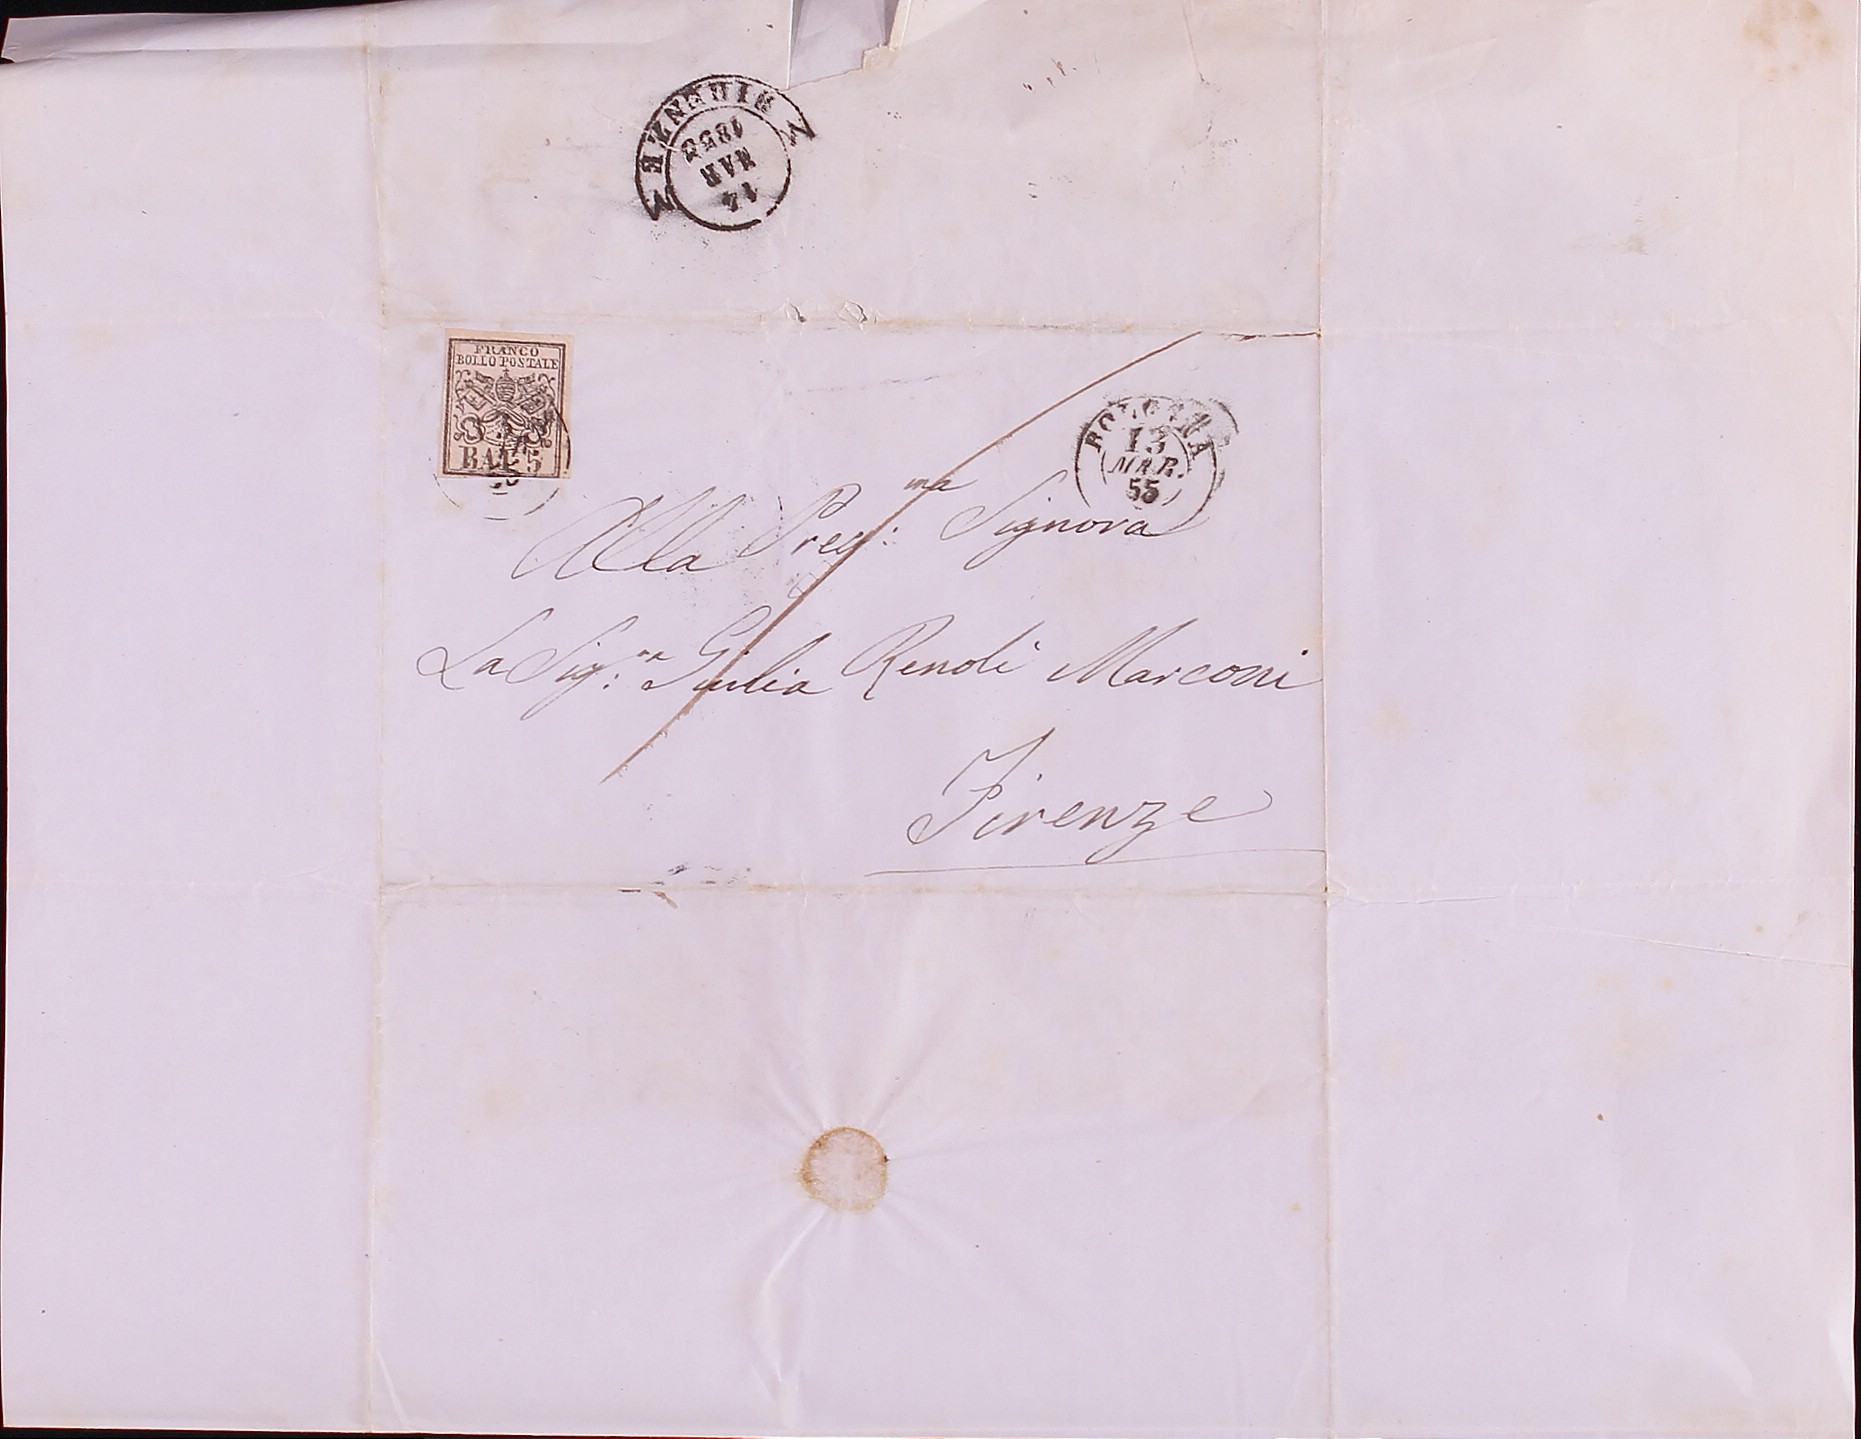 FIRENZE
14
MAR
1855
FRANCO
BOLLO POSTALE
BAI 5
BOLOGNA
13
MAR.
55
Alla Preg:ma Signora
La Sig:ra Giulia Renoli Marconi
Firenze